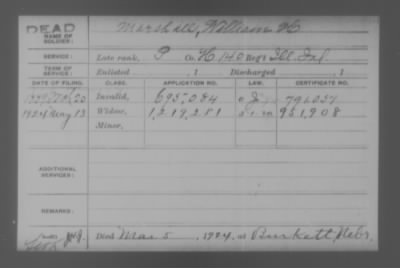 DEAD
NAME OF SOLDIER: Marshall, William H
SERVICE: Late rank, P Co. H 140 Reg't Ill Inf.
TERM OF SERVICE: Enlisted , 1 Discharged , 1
DATE OF FILING. CLASS. APPLICATION NO. LAW. CERTIFICATE NO.
20 Invalid, 695,084
1924 May 13 Widow, 1,219,281 951,908
Minor,
ADDITIONAL SERVICES:
REMARKS:
Died Mar 5, 1924, at Burkett, Nebr.